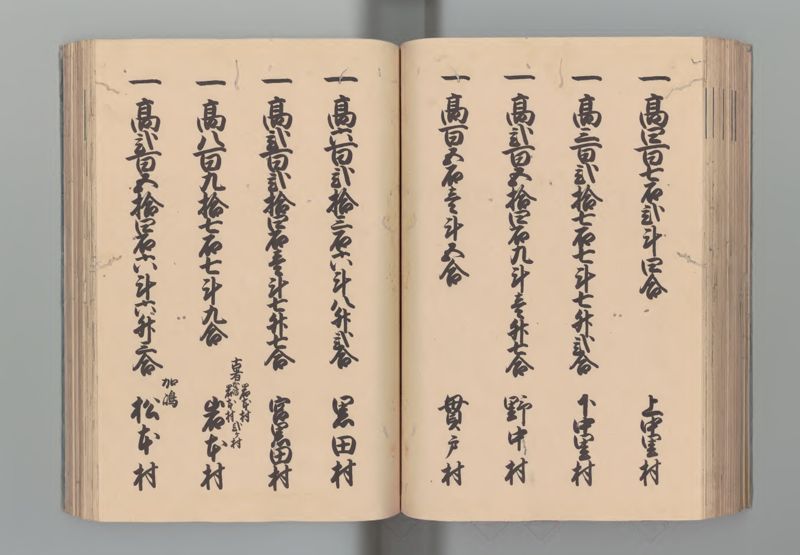 一高四百七石弐斗四合 上中里村
一高三百弐拾七石七斗七升弐合 下中里村
一高弐百五拾四石九斗壱升七合 野中村
一高百五石壱斗五合 貫戸村
一高六百弐拾三石六斗八升弐合 黒田村
一高弐百弐拾四石壱斗七升七合 宮原田村
一高八百九拾七石七斗九合 岩本村
古者 岩本村
弐ヶ村
一高弐百五拾四石六斗六升三合 加嶋 松本村